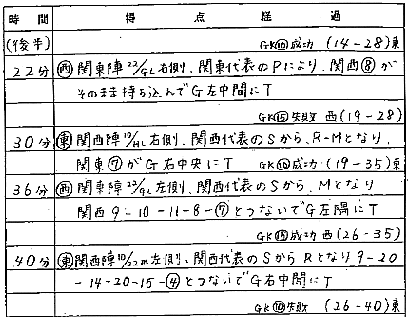 時間 得点経過
(後半) GK⑩成功 (14-28)東
22分 ㊄関東陣22/GL右側、関東代表のPにより、関西⑧が
そのまま持ち込んでG左中間にT
GK⑮失敗 西(19-28)
30分 ㊍関西陣10/HL右側、関西代表のSから、R-Mとなり、
関東⑦がG右中央にT GK⑩成功(19-35)東
36分 ㊄関東陣22/GL左側、関西代表のSから、Mとなり
関西9-10-11-8-⑦とつないでG左隅にT
GK⑮成功 西(26-35)
40分 関西陣10/22m左側、関西代表のSからRとなり9-20
-14-20-15-④とつないでG右中間にT
GK⑩失敗 (26-40)東